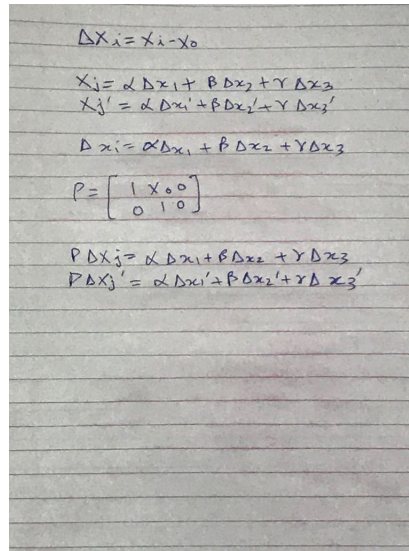 ΔXi = Xi - X0
Xj = αΔx1 + βΔx2 + γΔx3
Xj' = αΔx1' + βΔx2' + γΔx3'
Δxi = αΔx1 + βΔx2 + γΔx3
P = [ 1 X 0 0
0 1 0 ]
PΔXj = αΔx1 + βΔx2 + γΔx3
PΔXj' = αΔx1' + βΔx2' + γΔx3'